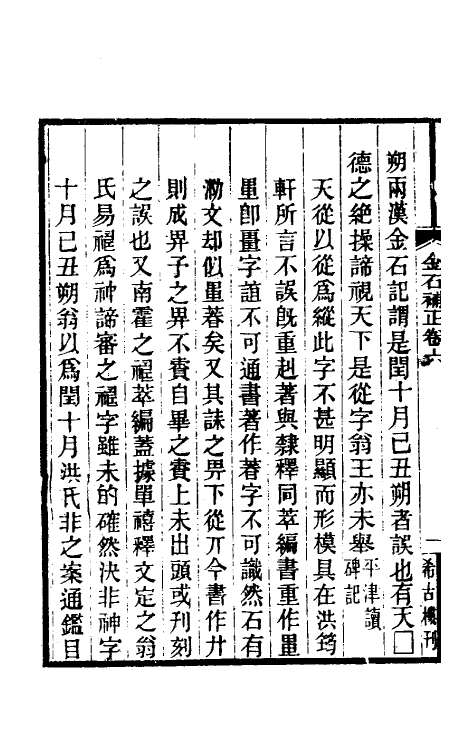 金石補正卷六 一 希古樓刊
朔兩漢金石記謂是閏十月己丑朔者誤也有天□
德之絶操諦視天下是從字翁王亦未舉平津讀碑記
天從以從爲縱此字不甚明顯而形模具在洪筠
軒所言不誤旣重赳著與隸釋同萃編書重作畺
畺卽畺字誼不可通書著作蓍字不可識然石有
泐文却似畺蓍矣又其誄之畀下從丌今書作廾
則成畀子之畀不賚自畢之賚上未出頭或刋刻
之誤也又南霍之禋萃編蓋據單禧釋文定之翁
氏易禋爲神諦審之禋字雖未的確然決非神字
十月己丑朔翁以爲閏十月洪氏非之案通鑑目